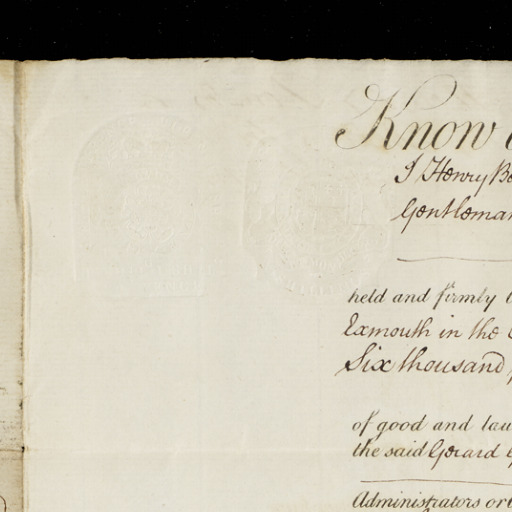 Know
I Henry
Gentleman
held and firmly
Exmouth in the
Six thousand
of good and law
the said Gerard
Administrators or